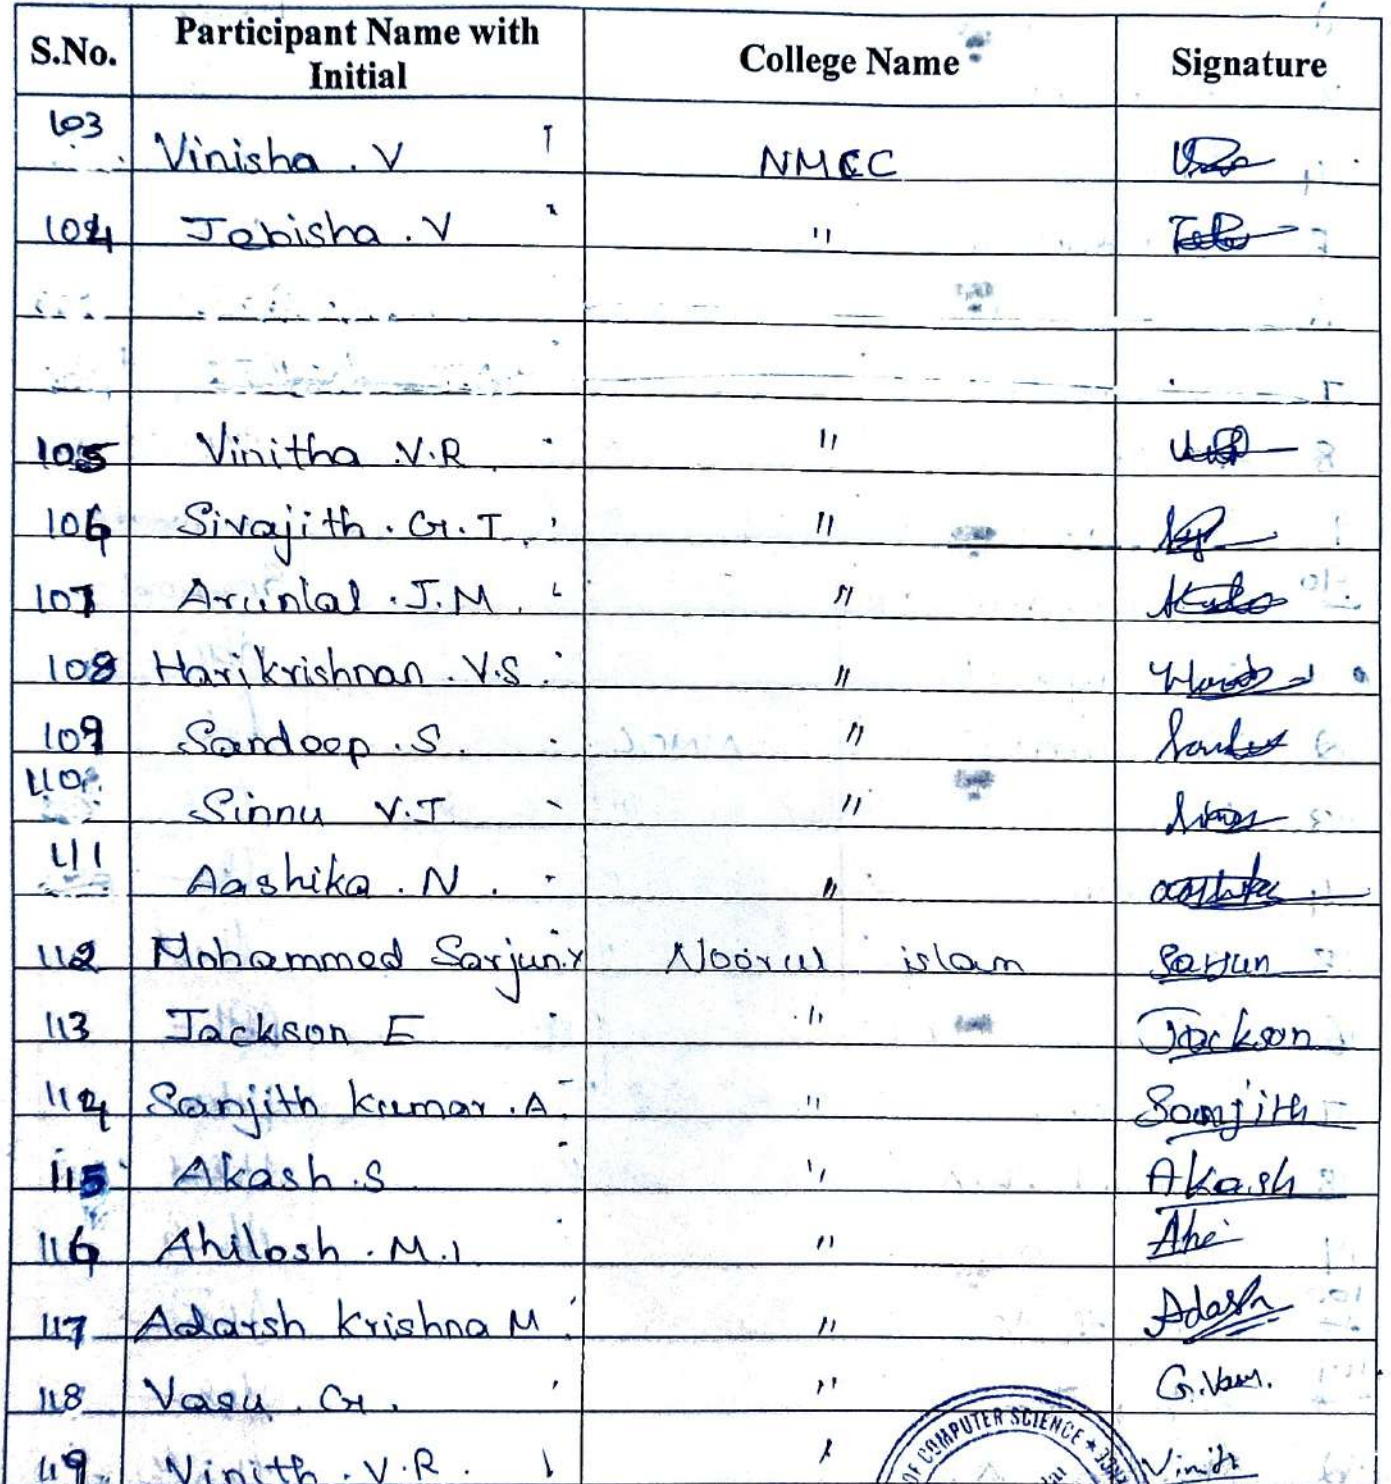 S.No. Participant Name with Initial College Name Signature
103 Vinisha . V NMCC
104 Jebisha . V "
105 Vinitha .V.R "
106 Sivajith . G. T. "
107 Arunlal . J.M. "
108 Harikrishnan . V.S "
109 Sandeep . S. "
110 Sinnu V.J "
111 Aashika . N . "
112 Mohammed Sarjun.Y Noorul islam Sarjun
113 Jackson E " Jackson
114 Sanjith kumar . A " Sanjith
115 Akash .S " Akash
116 Ahilosh . M.I "
117 Adarsh Krishna M " Adash
118 Vasu . G . " G.Vasu.
119 Vinith . V.R. "
OF COMPUTER SCIENCE ★